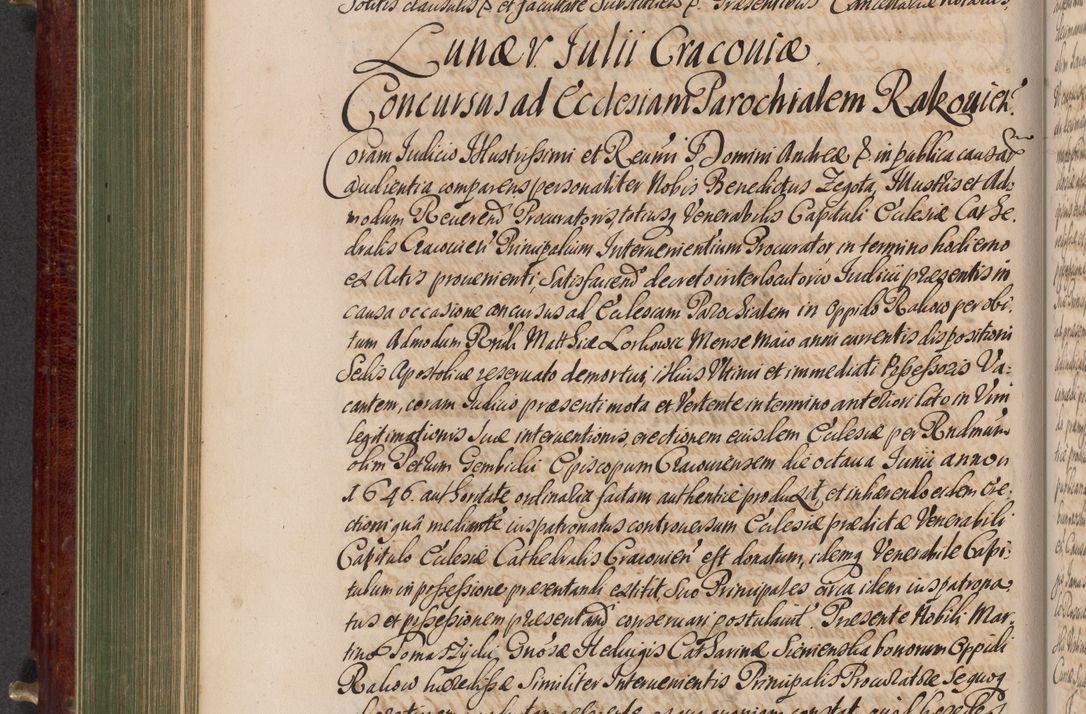 Solitis clausulis & et facultate substituendi &. Praesentibus Cancellariae Notariis,
Lunæ v. Iulii Cracoviæ.
Concursus ad Ecclesiam Parochialem Rakovien̄.
Coram Iudicio Illustrissimi et Reverm̄i D. Domini Andreæ & in publica causar̄
audientia comparens personaliter Nobis Benedictus Zegota, Illustris et Ad-
modum Reverend̄ Procuratoris, totiusq Venerabilis Capituli Ecclesiæ Cathe-
dralis Cracovien̄ Principalium Intervenientium Procurator in termino hodierno
ex Actis provenienti, Satisfaciend̄ decreto interlocutorio Iudicii præsentis in
causa occasione concursus ad Ecclesiam Parochialem in Oppido Rakow per obi-
tum Admodum Rn̄di Matthiæ Loskowic Mense Maio anni currentis dispositioni
Sedis Apostolicæ reservato demortui, illius Ultimi et immediati Possessoris Va-
cantem, coram Iudicio præsenti mota et Vertente in termino anteriori lato in Vim
legitimationis suæ interventionis, erectionem eiusdem Ecclesiæ per Rn̄dmūm
olim Petrum Gembicki Episcopum Cracoviensem die octava Iunii anno n
1646. authoritate ordinaria factam authenticè produxit, et inhærendo eidem Ere-
ctioni quâ mediante ius patronatus controversum Ecclesiæ prædictæ Venerabili
Capitulo Ecclesiæ Cathedralis Cracovien̄ est donatum, idemq Venerabile Capi-
tulum in possessione præsentandi extitit. Suo Principales circa idem ius patrona-
tus et possessionem præsentand̄ conservari postulavit. Præsente Nobili Mar-
tino Tomaszycki Gn̄osæ Hedvigis Catharinæ Siemenska bonorum Oppidi
Rakow hæredissæ Similiter Intervenientis Principalis Procuratore Sequoq